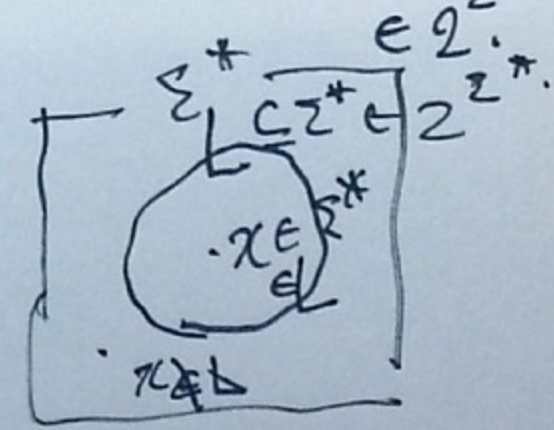 ∈ 2^Σ*.
Σ*
L ⊆ Σ* ∈ 2^Σ*.
. x ∈ Σ*
∈ L
. x ∉ L